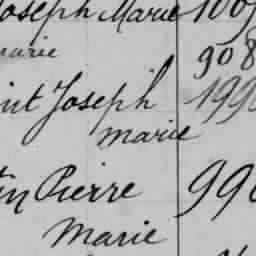 Joseph Marie 100
marie
908
int Joseph 199
marie
in Pierre 99
Marie